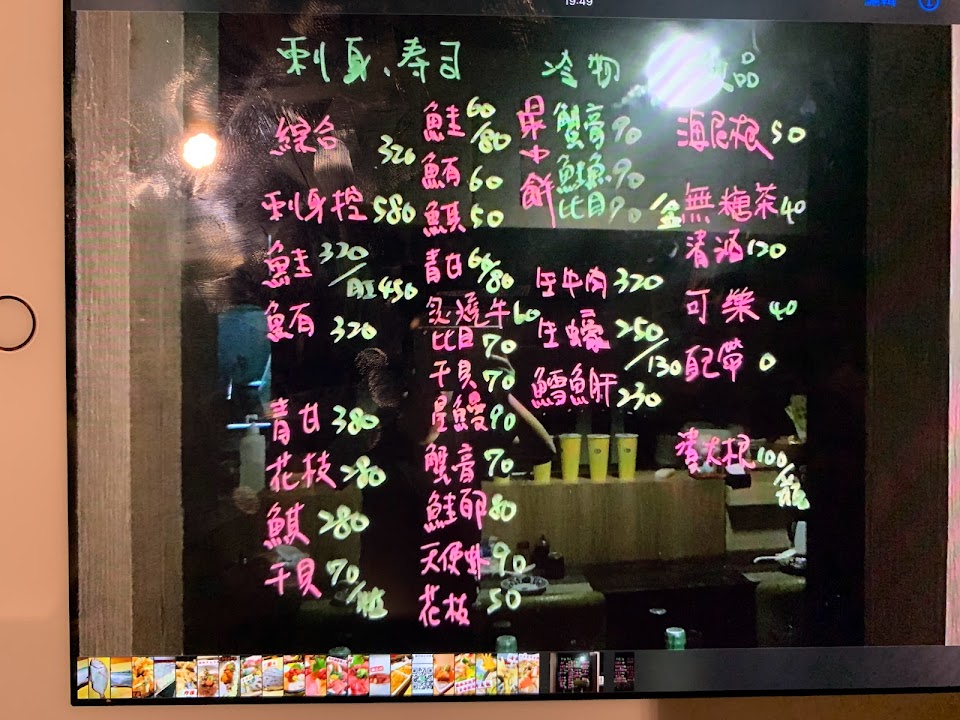 19:49
編輯
刺身、壽司
綜合 320
刺身控 580
鮭 320/肚 450
鮪 320
青甘 380
花枝 280
鯕 280
干貝 70/粒
鮭 60/80
鮪 60
鯕 50
青甘 60/80
炙燒牛 60
比目 70
干貝 70
星鰻 90
蟹膏 70
鮭卵 80
天使蝦 90
花枝 50
冷物
最中餅
蟹膏 90
鮭魚 90
比目 90
生牛肉 320
生蠔 250/130
鱈魚肝 230
品
海尼根 50
無糖茶 40
清酒 120
可樂 40
配帶 0
漬大根 100